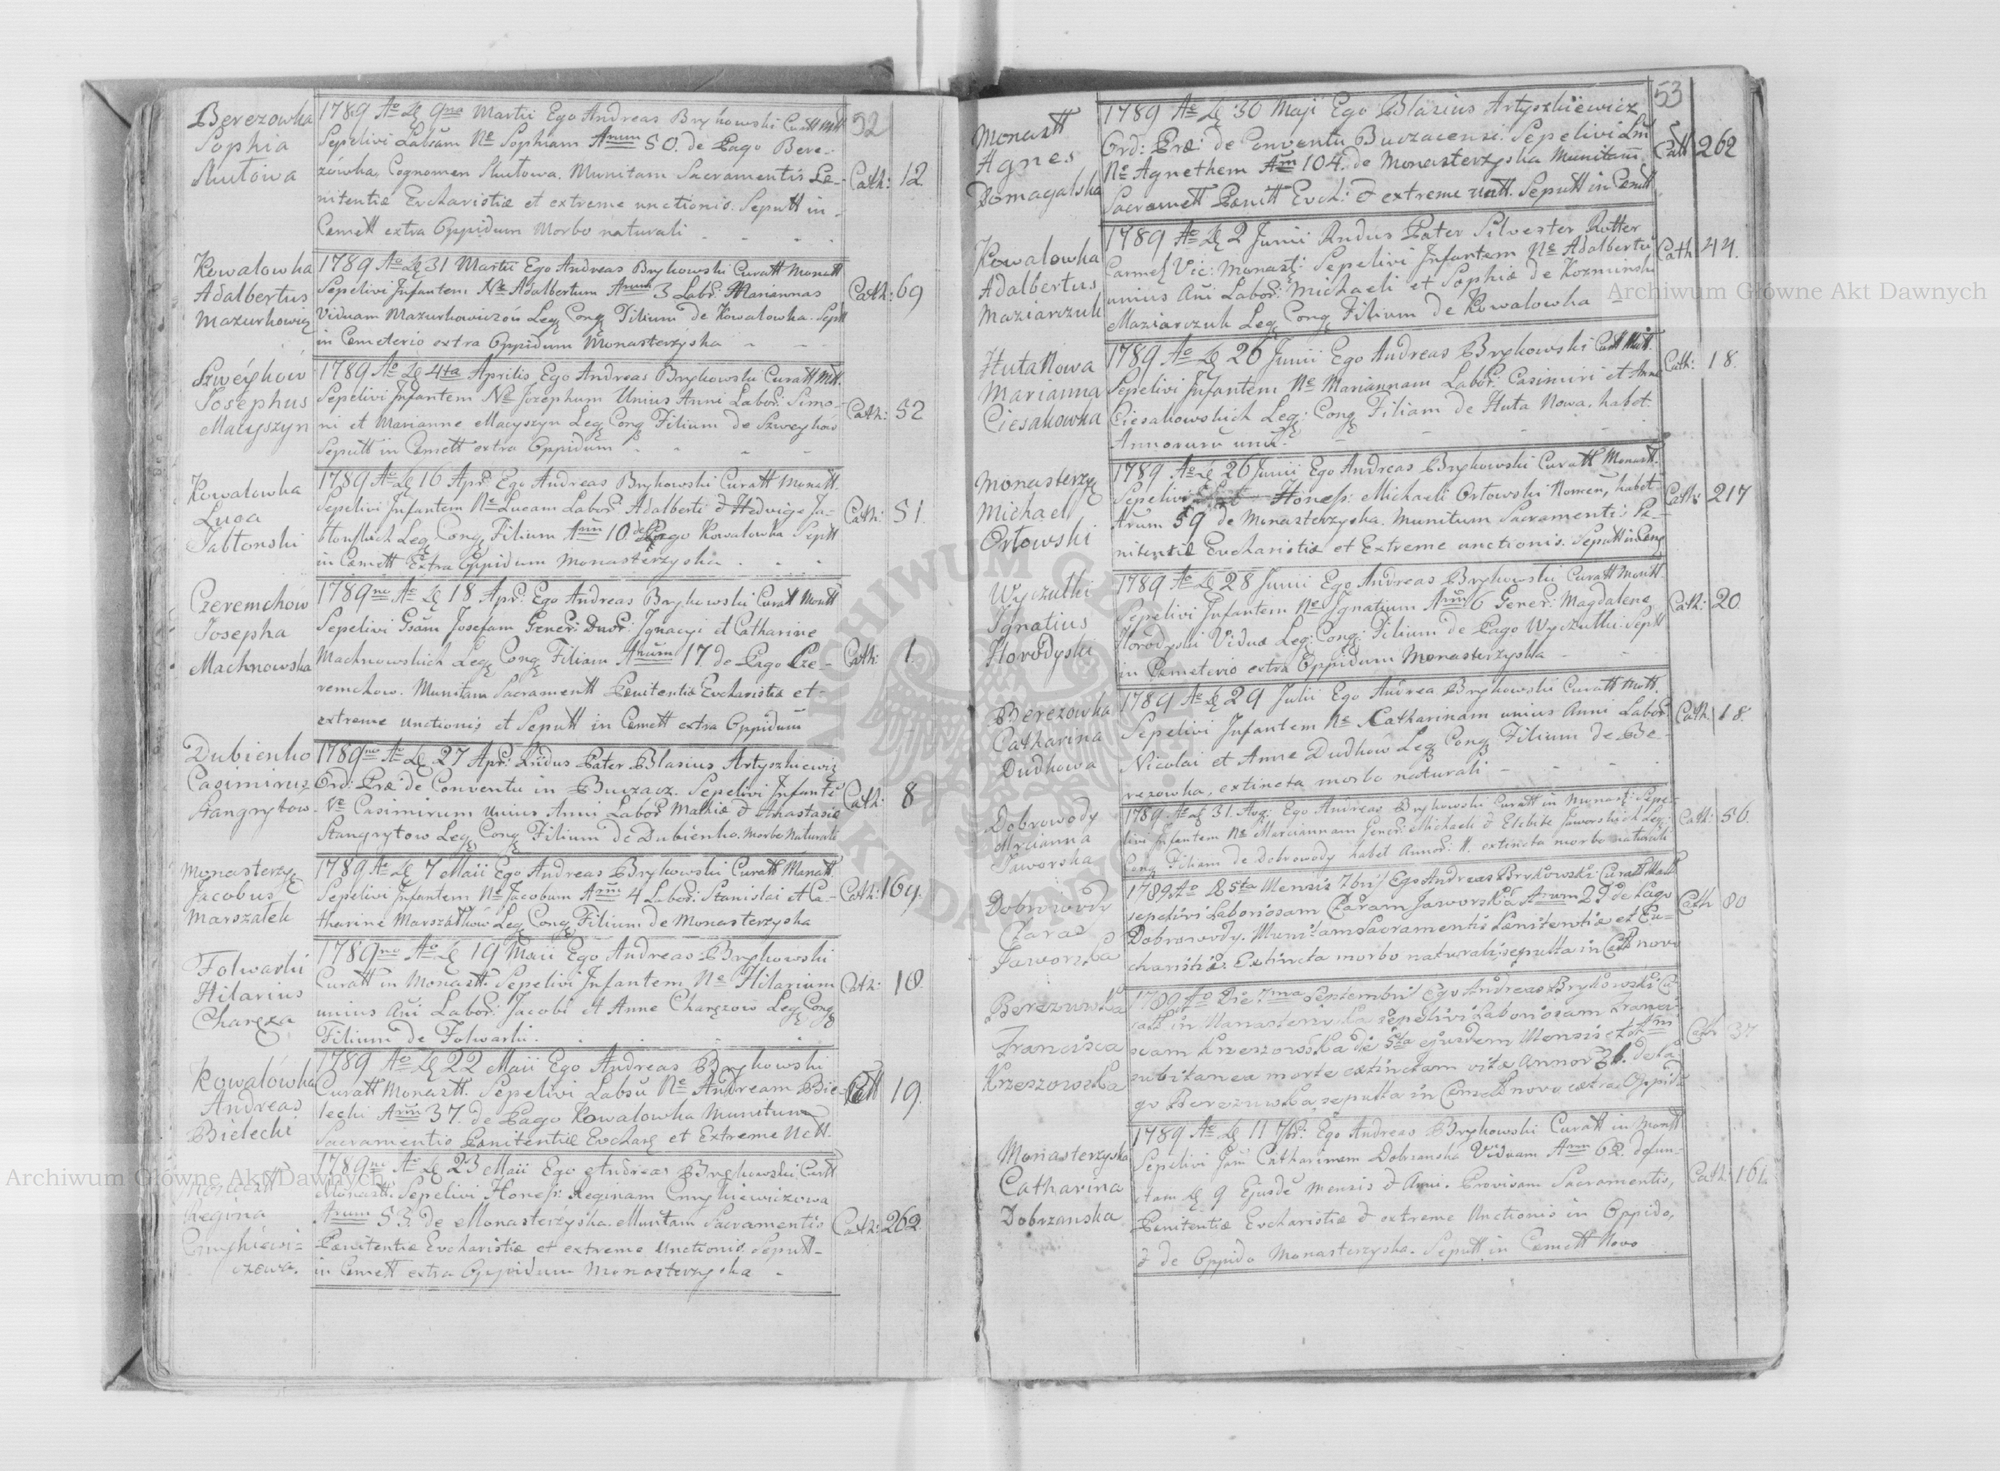 52
Berezowka
Sophia
1789 Aō Dę 9na Martii Ego Andreas Brykowski Curatt Mtt
Sepelivi Labsam Ne Sophiam Arum 50. de Pago Bere-
zówka Cognomen Skutowa. Munitam Sacramentis Pæ-
nitentiæ Eucharistiæ et extreme unctionis. Sepultt in
Cemett extra Oppidum Morbo naturali
Cath: 12.
Kowalowka
Adalbertus
Mazurkowicz
1789 Aō Dę 31 Martii Ego Andreas Brykowski Curatt Monatt
Sepelivi Infantem Ne Adalbertum Arum 3 Labr. Mariannas
Viduam Mazurkowiczow Leg Cong Filium de Kowalowka. Septt
in Cemeterio extra Oppidum Monasterzyska
Cath: 69
Szweyków
Josephus
Macyszyn
1789 Aō Dę 4ta Aprilis Ego Andreas Brykowski Curatt Mtt.
Sepelivi Infantem Ne Josephum Unius Anni Labor. Simo-
ni et Marianne Macyszyn Leg Cong Filium de Szweykow
Sepultt in Cemett extra Oppidum
Cath: 52
Kowalowka
Luca
Jabłonski
1789 Aō Dę 16 Apr. Ego Andreas Brykowski Curatt Monatt.
Sepelivi Infantem Ne Lucam Labor. Adalberti & Hedvige Ja-
błonskich Leg Cong Filium Arum 10 de Pago Kowalowka Septt
in Cemett Extra Oppidum Monasterzyska
Cath: 51.
Czeremchów
Josepha
Machnowska
1789no Aō Dę 18 Apr. Ego Andreas Brykowski Curatt Montt
Sepelivi Gsam Josefam Gener: Dnor: Ignacyi et Catharine
Machnowskich Leg Cong Filiam Arum 17 de Pago Cze-
remchow. Munitam Sacramentt Pænitentiæ Eucharistiæ et
extreme unctionis et Sepultt in Cemett extra Oppidum
Cath: 1.
Dubienko
Casimirus
Stangrytow
1789no Aō Dę 27 Apr. Rndus Pater Blasius Artyszkiewiz
Ord: Præ de Conventu in Buczacz. Sepelivi Infanti
Ne Casimirum Unius Anni Labor Mathiæ & Anastasiæ
Stangrytow Leg Cong Filium de Dubienko. Morbo Naturali
Cath: 8
Monasterzy
Jacobus
Marszałek
1789 Aō Dę 7 Maii Ego Andreas Brykowski Curatt Monatt.
Sepelivi Infantem Ne Jacobum Arum 4 Labor. Stanislai et Ca-
tharine Marszałkow Leg Cong Filium de Monasterzyska
Cath: 169.
Folwarki
Hilarius
Charęza
1789no Aō Dę 19 Maii Ego Andreas Brykowski
Curatt in Monastt. Sepelivi Infantem Ne Hilarium
unius Ani Labor. Jacobi et Anne Charęzow Leg Cong
Filium de Folwarki.
Cath: 10.
Kowalówka
Andreas
Bielecki
1789 Aō Dę 22 Maii Ego Andreas Brykowski
Curatt Monastt. Sepelivi Labsu Ne Andream Bie-
lecki Arum 37. de Pago Kowalowka Munitum
Sacramentis Pænitentiæ Euchar et Extreme Uctt.
Catt 19.
Monastt
Regina
1789no Aō Dę 23 Maii Ego Andreas Brykowski Curtt
Monastt. Sepelivi Honess: Reginam Cmykiewiczowa
Arum 55 de Monasterzyska Munitam Sacramentis
Pænitentiæ Eucharistiæ et extreme Unctionis Sepultt
in Cemett extra Oppidum Monasterzyska
Cath: 262.
53
Monastt
Agnes
Domagalska
1789 Aō Dę 30 Maji Ego Blasius Artyszkiewicz
Ord: Præ: de Conventu Buczacensi. Sepelivi Lm
Ne Agnethem Arm 104. de Monasterzyska Munitam
Sacramett Pænitt Euch: & extreme untt. Sepultt in Cemtt
Catt 262
Kowalowka
Adalbertus
Maziarczuk
1789 Aō Dę 2 Junii Rndus Pater Silvester Rutter
Carmel Vic: Monast: Sepelivi Infantem Ne Adalbertu
unius Ani Labor: Michaeli et Sophiæ de Kozminski
Maziarczuk Leg Cong Filium de Kowalowka
Cath 44.
Huta Nowa
Marianna
Ciesakowka
1789 Aō Dę 26 Junii Ego Andreas Brykowski Curtt Mntt.
Sepelivi Infantem Ne Mariannam Labor: Casimiri et Anne
Ciesakowskich Leg: Cong Filiam de Huta Nowa. habet
Annorum unu
Cath: 18.
Monasterzy
Michael
Orłowski
1789 Aō Dę 26 Junii Ego Andreas Brykowski Curatt Monastt.
Sepelivi Honess: Michaeli Orłowski Nomen, habet
Arum 59 de Monasterzyska. Munitum Sacramentis Pæ-
nitentiæ Eucharistiæ et Extreme unctionis. Sepultt in Cem
Cath: 217
Wyczułki
Ignatius
Horodyski
1789 Aō Dę 28 Junii Ego Andreas Brykowski Curatt Montt.
Sepelivi Infantem Ne Ignatium Arum 6 Gener: Magdalene
Horodyski Viduæ Leg: Cong: Filium de Pago Wyczułki: Septt
in Cemeterio extra Oppidum Monasterzyska
Cath: 20.
Berezowka
Catharina
Dudkowa
1789 Aō Dę 29 Julii Ego Andrea Brykowski Curatt Mtt.
Sepelivi Infantem Ne Catharinam unius Anni Labor
Nicolai et Anne Dudkow Leg Cong Filium de Be-
rezowka, extincta morbo naturali
Cath: 18.
Dobrowody
Marianna
Jaworska
1789. Aō Dę 31. Aug: Ego Andreas Brykowski Curatt in Monast: Sepe-
livi Infantem Ne Mariannam Gener. Michaeli & Elsbite Jaworskich Leg:
Cong Filiam de Dobrowody habet Annor: 11. extincta morbo naturali
Cath: 56.
Dobrowody
Clara
Jaworska
1789 Aō D 5ta Mensis 7bris Ego Andreas Brykowski Curatt Mntt
sepelivi Laboriosam Claram Jaworska Arum 23 de Pago
Dobrowody. Munitam Sacramentis Pænitentiæ et Eu-
charistiæ: Extincta morbo naturali, sepulta in Cett novo
Cath 80
Berezuwka
Francisca
Krzeszowska
1789 Aō Die 7ma Septembris Ego Andreas Brykowski Cu-
ratt in Monasterzyska sepelivi Laboriosam Franci-
scam Krzeszowska de 5ta ejusdem Mensis et Ani
subitanea morte extinctam vitæ Annor 31. de Pa-
go Berezuwka sepulta in Cemtt novo extra Oppid
Cath 37
Monasterzyska
Catharina
Dobrzanska
1789 Aō Dę 11 7br: Ego Andreas Brykowski Curatt in Monstt
Sepelivi Catharinam Dobzanska Viduam Arum 62. defun-
ctam Dę 9 Ejusde Mensis & Anni. Provisam Sacramentis,
Pænitentiæ Eucharistiæ & extreme Unctionis in Oppido,
& de Oppido Monasterzyska. Sepultt in Cemett Novo
Cath: 161.
Archiwum Główne Akt Dawnych
Archiwum Główne Akt Dawnych
ARCHIWUM GŁÓWNE AKT DAWNYCH